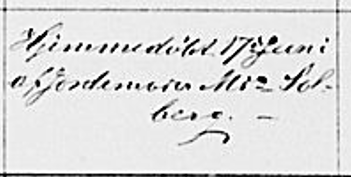 Hjemmedöbt 17de Juni
af Jordemoder Mrs Sol-
berg. —